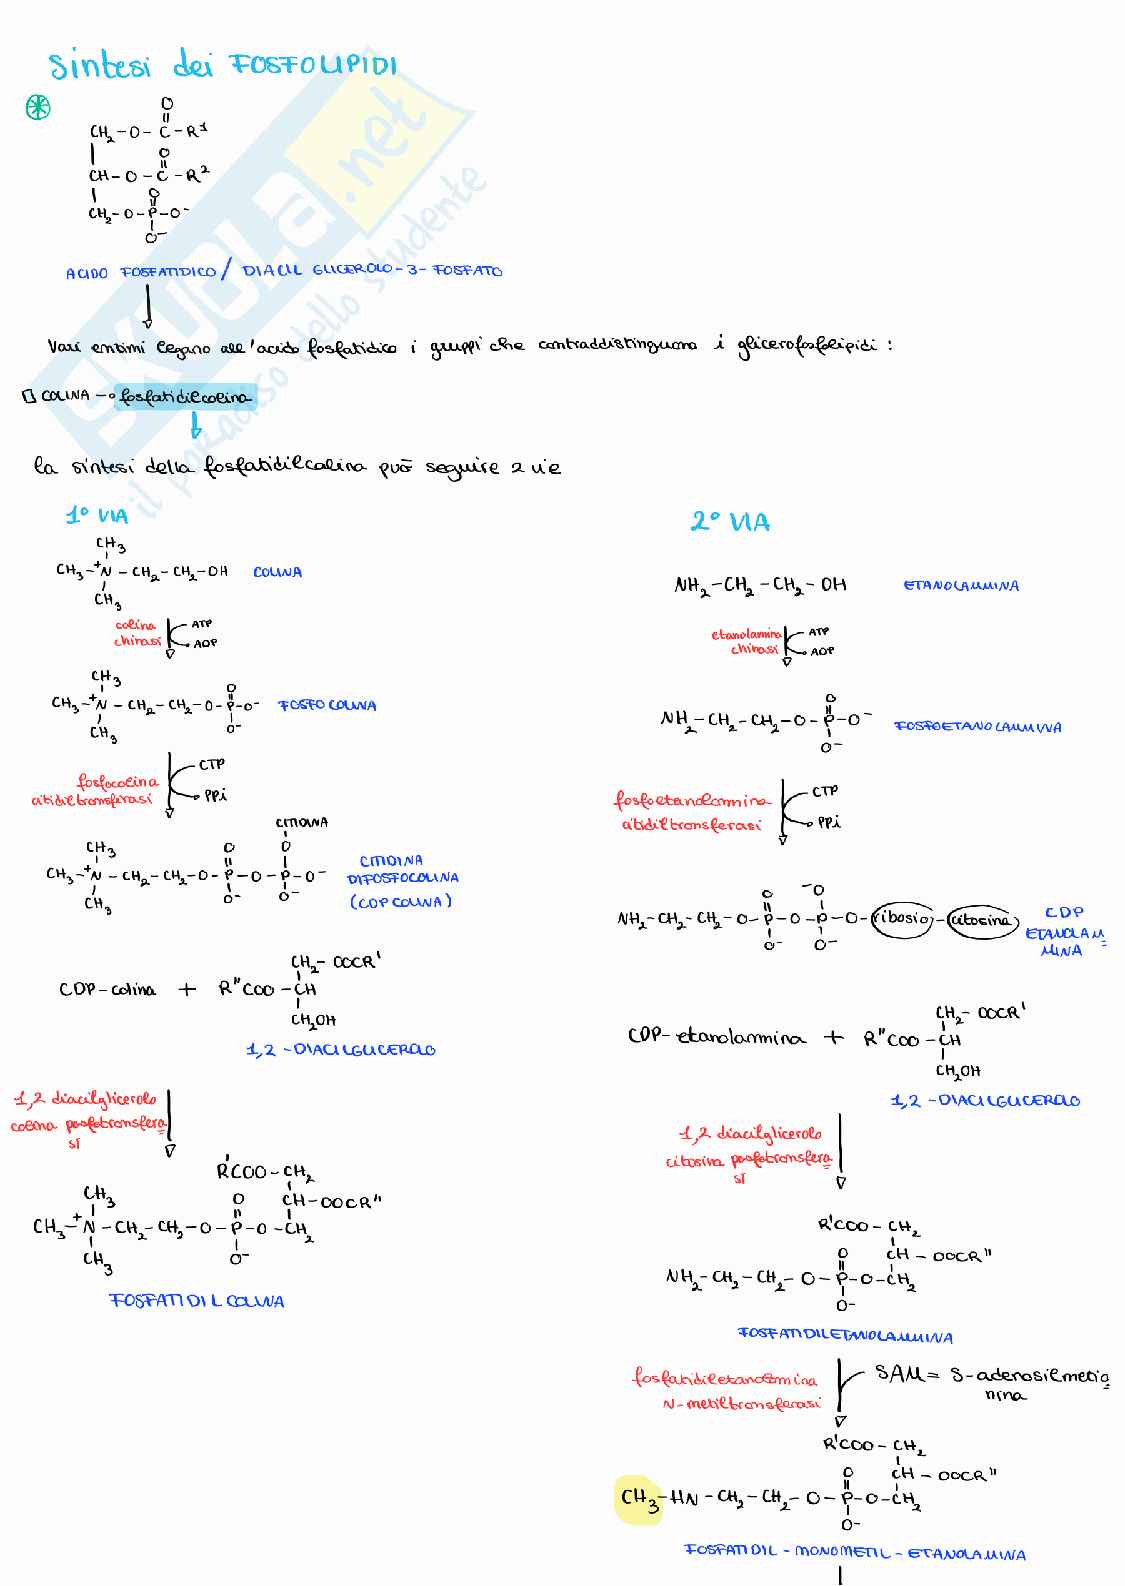 Sintesi dei FOSFOLIPIDI
O
CH2-O-C-R1
O
CH-O-C-R2
O
CH2-O-P-O-
O-
ACIDO FOSFATIDICO / DIACIL GLICEROLO-3-FOSFATO
Vari enzimi legano all'acido fosfatidico i gruppi che contraddistinguono i glicerofosfolipidi:
COLINA → fosfatidilcolina
la sintesi della fosfatidilcolina può seguire 2 vie
1° VIA
CH3
CH3-+N-CH2-CH2-OH COLINA
CH3
colina ATP
chinasi ADP
CH3 O
CH3-+N-CH2-CH2-O-P-O- FOSFOCOLINA
CH3 O-
CTP
fosfocolina
citidiltransferasi PPi
CITIDINA
CH3 O O
CH3-+N-CH2-CH2-O-P-O-P-O-
CH3 O- O-
CITIDINA
DIFOSFOCOLINA
(CDP COLINA)
CH2-OOCR'
CDP-colina + R"COO-CH
CH2OH
1,2-DIACILGLICEROLO
1,2 diacilglicerolo
colina fosfotransfera
si
R'COO-CH2
CH3 O CH-OOCR"
CH3-+N-CH2-CH2-O-P-O-CH2
CH3 O-
FOSFATIDILCOLINA
2° VIA
NH2-CH2-CH2-OH ETANOLAMMINA
etanolamina ATP
chinasi ADP
O
NH2-CH2-CH2-O-P-O- FOSFOETANOLAMMINA
O-
CTP
fosfoetanolammina
citidiltransferasi PPi
O -O
NH2-CH2-CH2-O-P-O-P-O-ribosio-citosina
O- O-
CDP
ETANOLAM
MINA
CH2-OOCR'
CDP-etanolammina + R"COO-CH
CH2OH
1,2-DIACILGLICEROLO
1,2 diacilglicerolo
citosina fosfotransfera
si
R'COO-CH2
O CH-OOCR"
NH2-CH2-CH2-O-P-O-CH2
O-
FOSFATIDILETANOLAMMINA
fosfatidiletanolamina SAM = S-adenosilmetio
N-metiltransferasi nina
R'COO-CH2
O CH-OOCR"
CH3-HN-CH2-CH2-O-P-O-CH2
O-
FOSFATIDIL-MONOMETIL-ETANOLAMINA
SKUOLA.net
il paradiso dello studente